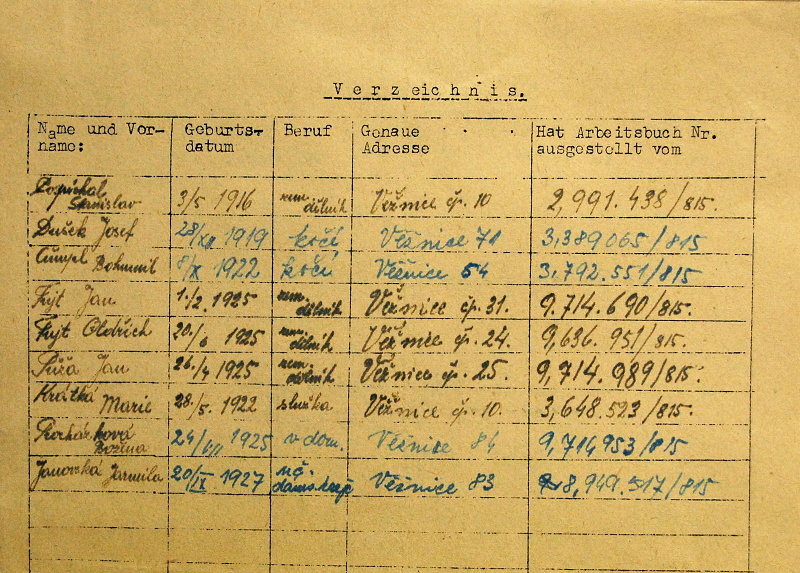 Verzeichnis.
Name und Vor-name: Geburts-datum Beruf Genaue Adresse Hat Arbeitsbuch Nr. ausgestellt vom
Pospíchal Stanislav 3/5 1916 zem. dělník Věžnice čp. 10 2,991.438/815.
Dušek Josef 28/XII 1919 kočí Věšnice 71 3,389065/815
Čumpl Bohumil 8/X 1922 kočí Věšnice 54 3.792.551/815
Fejt Jan 1./2. 1925 zem. dělník Věžnice čp. 31. 9.714.690/815.
Fejt Oldřich 20./6 1925 zem. dělník Věžnice čp. 24. 9,636.951/815.
Jan 26./4 1925 zem. dělník Věžnice čp. 25. 9,714.989/815.
Krátká Marie 28./5. 1922 služka Věžnice čp. 10. 3,648.523/815.
Božena 24/VII 1925 v dom. Věšnice 84 9,714953/815
Janovská Jarmila 20/IX 1927 uč. Věšnice 83 8,949.517/815